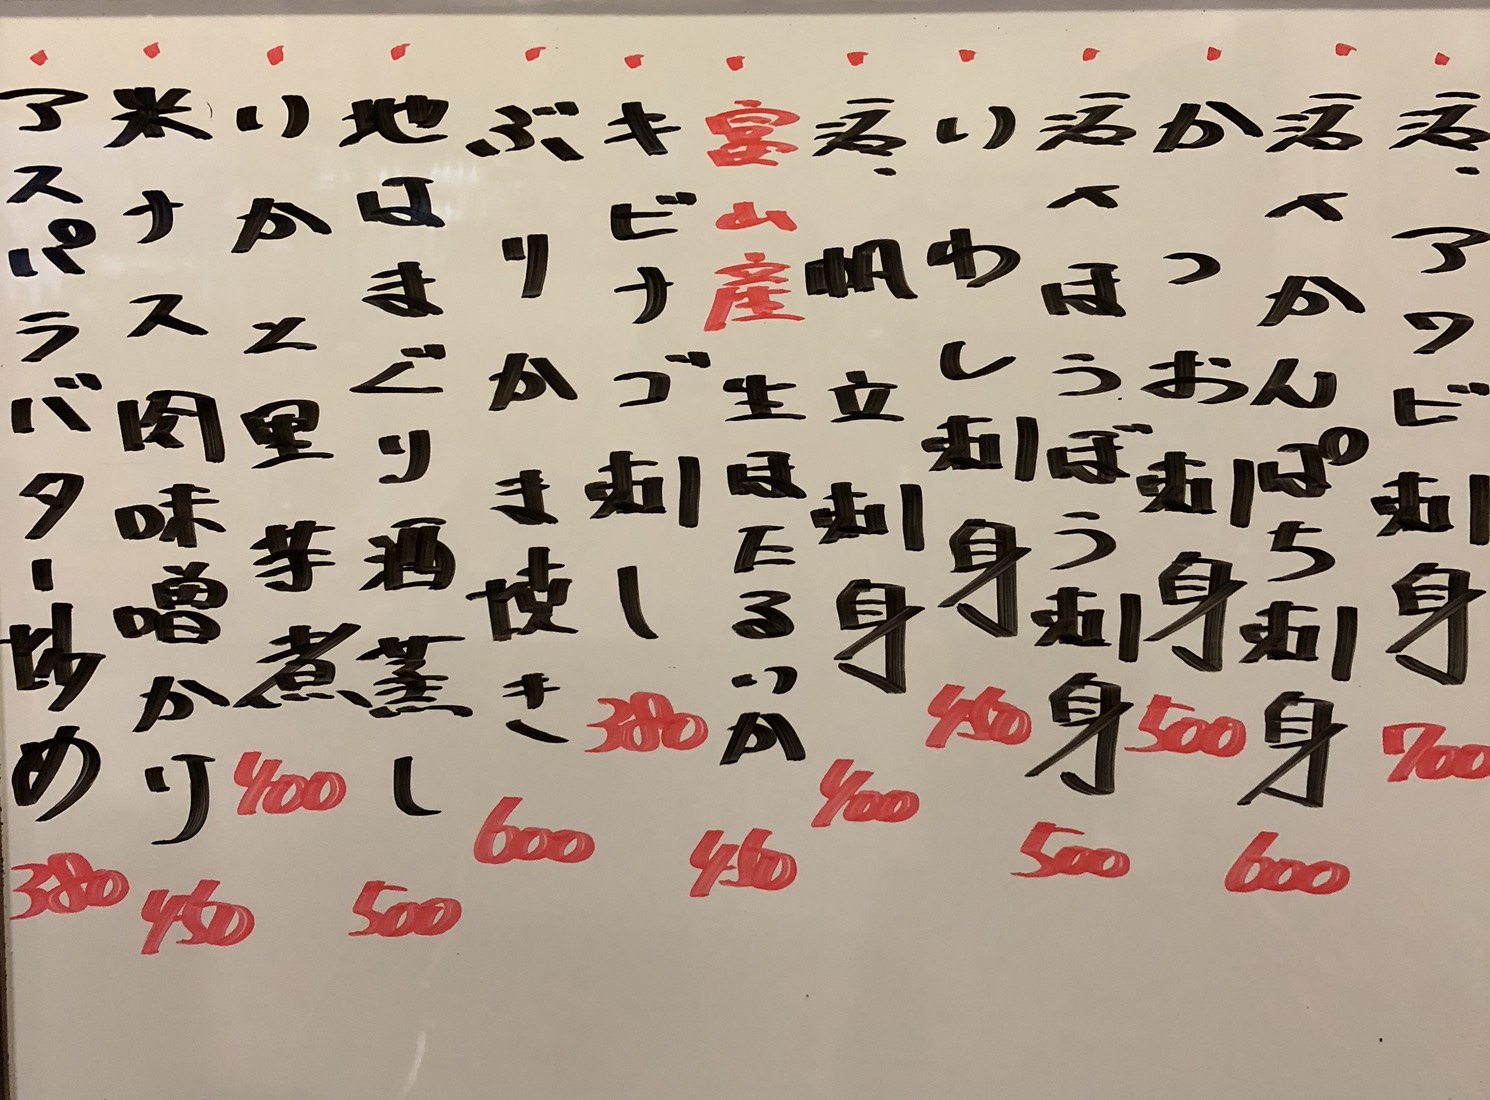 活、アワビ刺身 700
活〆かんぱち刺身 600
かつお刺身 500
活〆ほうぼう刺身 500
いわし刺身 450
活、帆立刺身 400
富山産 生ほたるいか 450
キビナゴ刺し 380
ぶりかま焼き 600
地はまぐり酒蒸し 500
いかと里芋煮 400
米ナス肉味噌かり 450
アスパラバター炒め 380